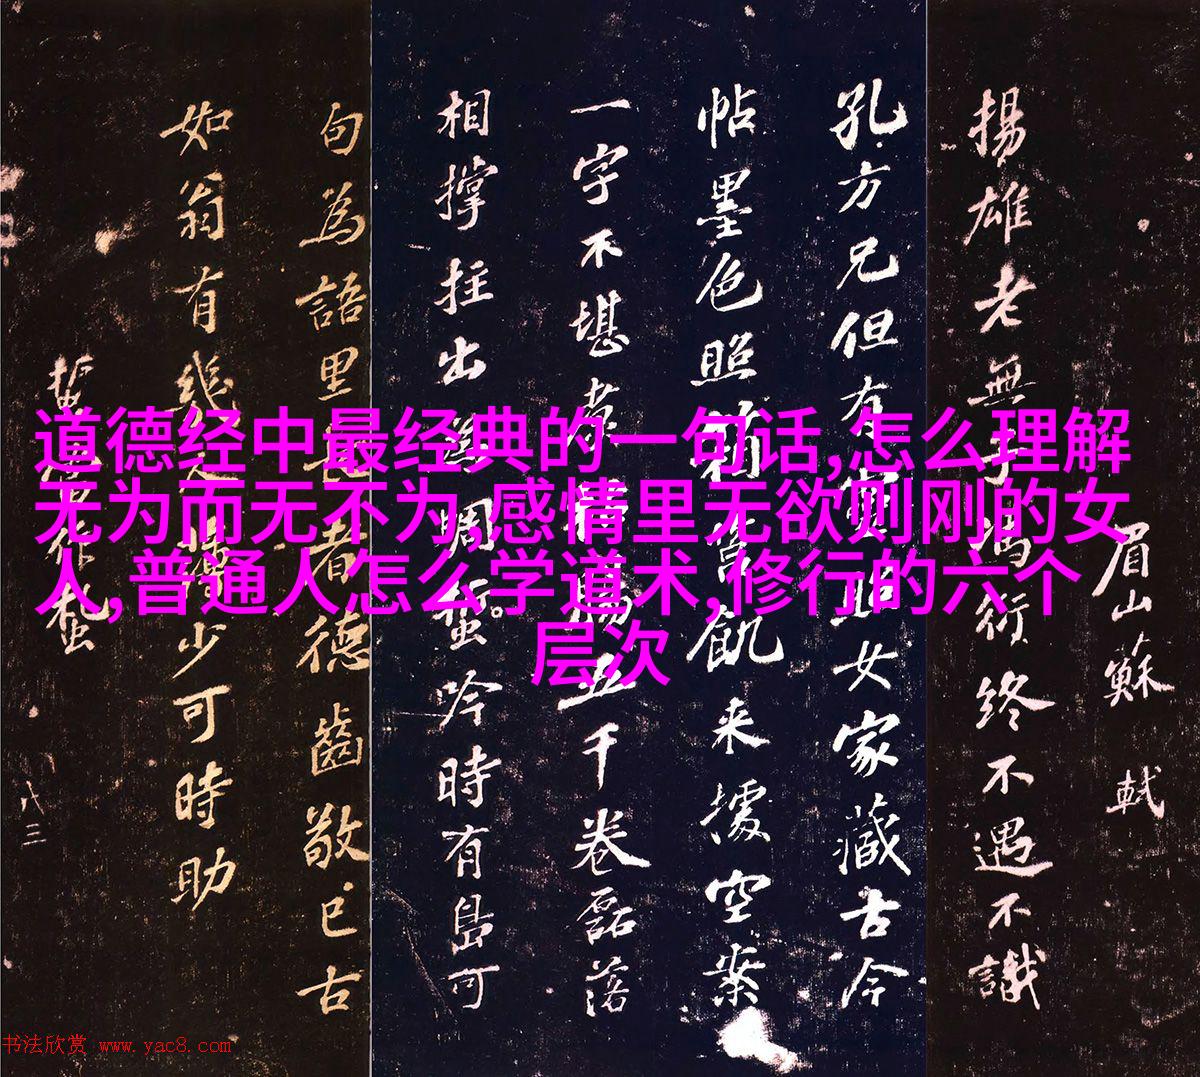 道德经中最经典的一句话,怎么理解
无为而无不为,感情里无欲则刚的女
人,普通人怎么学道术,修行的六个
层次
眉山蘇軾
揚雄老無子馮衍終不遇不識
孔方兄但有照女家藏古今
帖墨色照箱筥飢来據空案
一字不堪煮腸五千卷磊落
相撐拄出為蜩蛩吟時有島可
句為語里長者德齒敬已古
如翁有幾少可時助
八三
书法欣赏 www.yac8.com